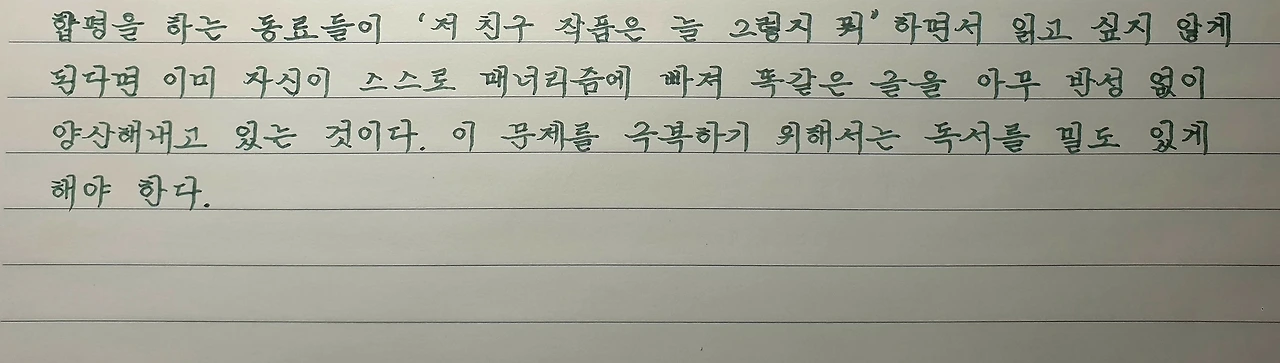 합평을 하는 동료들이 ‘저 친구 작품은 늘 그렇지 뭐’ 하면서 읽고 싶지 않게
된다면 이미 자신이 스스로 매너리즘에 빠져 똑같은 글을 아무 반성 없이
양산해내고 있는 것이다. 이 문제를 극복하기 위해서는 독서를 밀도 있게
해야 한다.